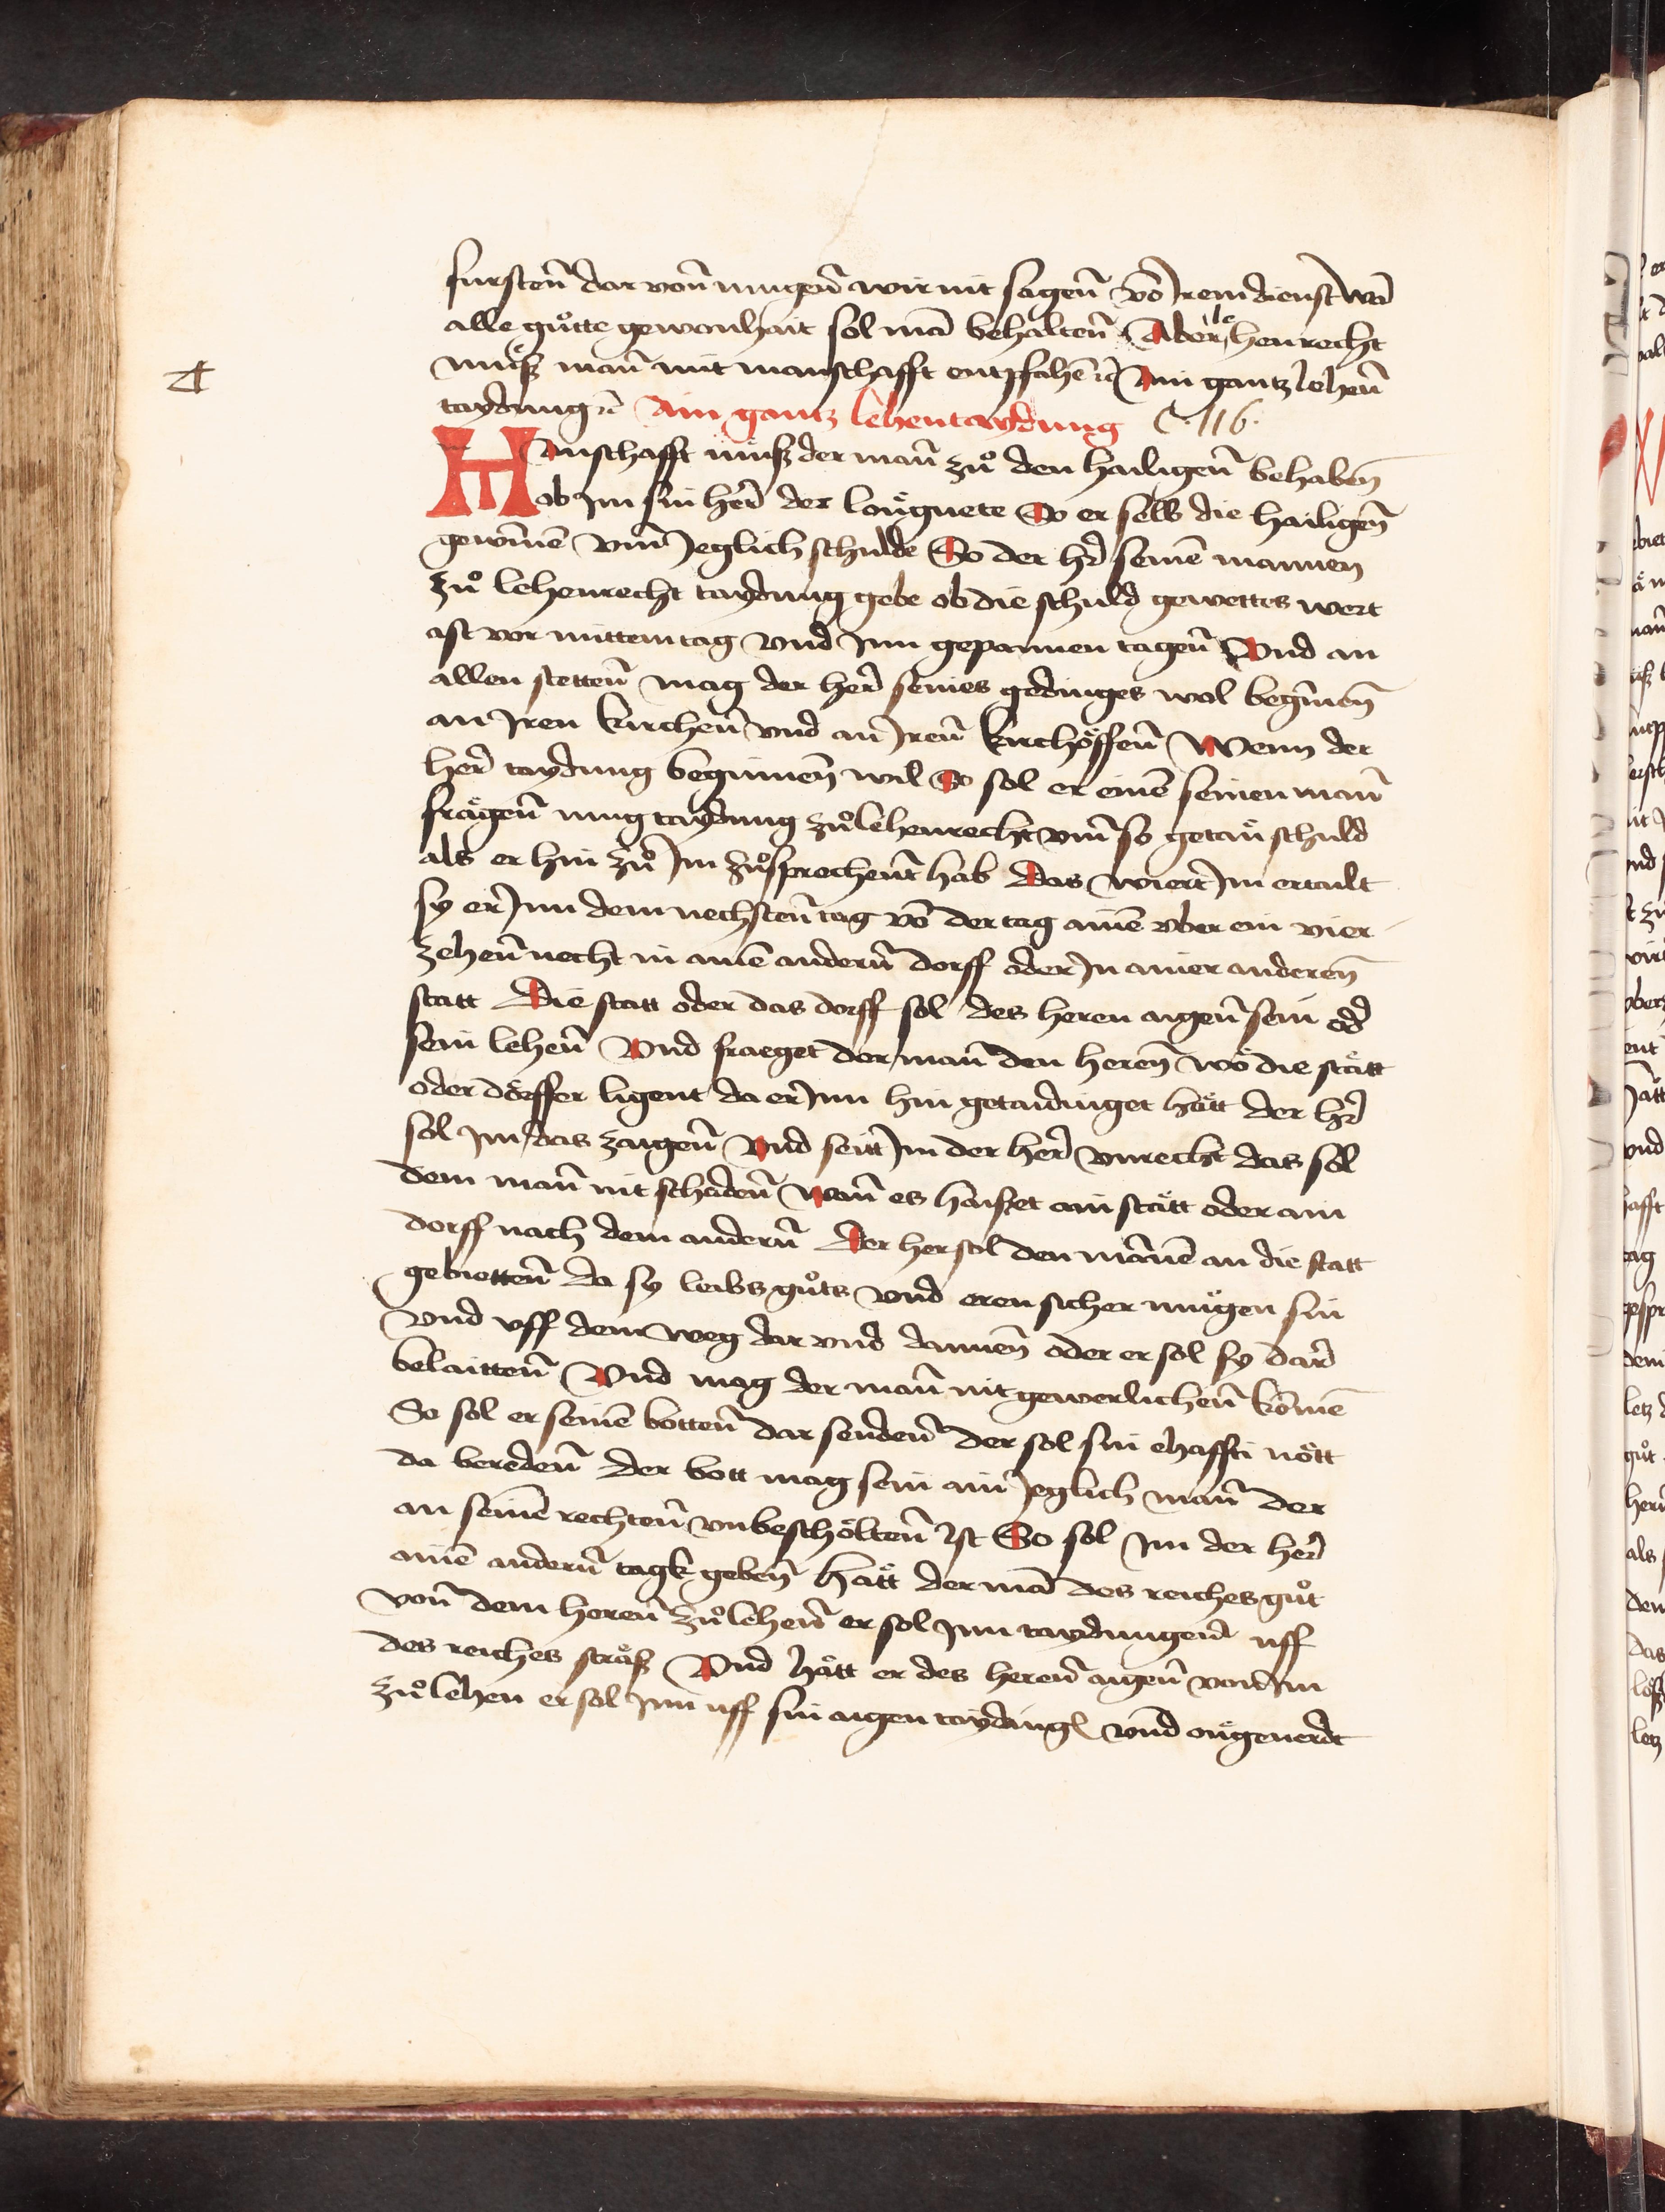 fursteñ dar voñ mugeñ wir nit sageñ võ Irem dienst wã
alle gůtte gewonhait sol mã behalteñ Aber lehenrecht
muͤß mañ mit manschafft entpfahẽ ꝛc Ain gantz leheñ
taydung ꝛc Ain gantz lehentaydung C. 116.
Manschafft muͤß der mañ zů den hailigeñ behabeñ
ob Im sin her̃ der loͧgnete So er selb die hailigeñ
gewinnẽ vm̃ Jeglich schulde So der hr̃ seinẽ mannen
zů lehenrecht taydung gebe ob die schuld gewettes wert
ist vor mittem tag vnd Inn gepannen tageñ Vnd an
allen stetteñ mag der her̃ seines gedinges wol begiñeñ
an Iren kircheñ vnd an Ireñ kirchöffeñ Wenn der
her̃ taydung beginneñ wil So sol er einẽ seinen mañ
frägeñ umg taydung zů lehenrecht vm̃ so getaͤn schuld
als er hin zů Im zů sprecheñt hab Das wiert Im ertailt
sy er Inn dem nechsteñ tag võ der tag ainẽ vber ein vier
zeheñ necht in ainẽ anderñ dorff oder In ainer andereñ
statt Die statt oder das dorff sol des heren aigeñ sein od̃
sein leheñ Vnd fraeget der mañ den hereñ wö die stätt
oder dörffer ligent da er Inn hin getaidinget hätt der hr̃
sol Im das zaigeñ Vnd seitt Im der her̃ vnrecht das sol
dem mañ nit schadeñ wañ es haisset ain stätt oder ain
dorff nach dem anderñ Der her sol den mañẽ an die statt
gebietteñ da sy leibs gůts vnd eren sicher muͤgen sin
vnd vff dem weg dar vnd danneñ oder er sol sy dar̃
belaitteñ Vnd mag der mañ nit gewerlicheñ kom̃ẽ
So sol er seinẽ botteñ dar sendeñ der sol sin ehaffti nött
da beredeñ Der bott mag sein ain Jeglich mañ der
an seinẽ rechteñ vnbeschölteñ ist So sol Im der her̃
ainẽ anderñ tagk gebeñ Hätt der mã des reiches gůt
voñ dem hereñ zů leheñ er sol Inn taydungeñ uff
des reiches sträß Vnd hätt er des hereñ aigeñ von Im
zů lehen er sol Inn uff sin aigen taydingen vnd